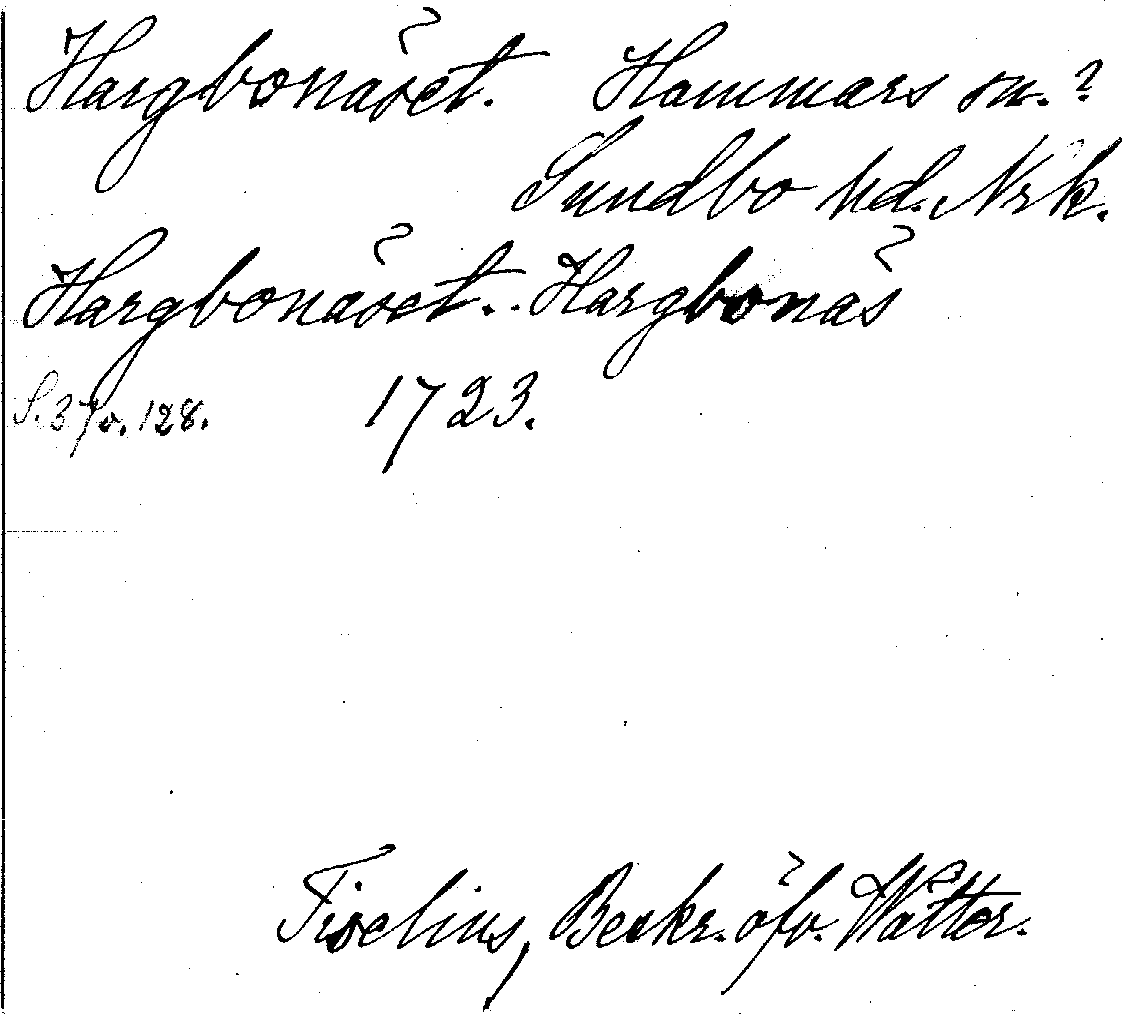 Hargbonäset. Hammars sn.?
Sundbo hd. Nrk.
Hargbonäset.. Hargbonäs
S. 37 o. 128. 1723.
Tiselius, Beskr. öfv. Wätter.